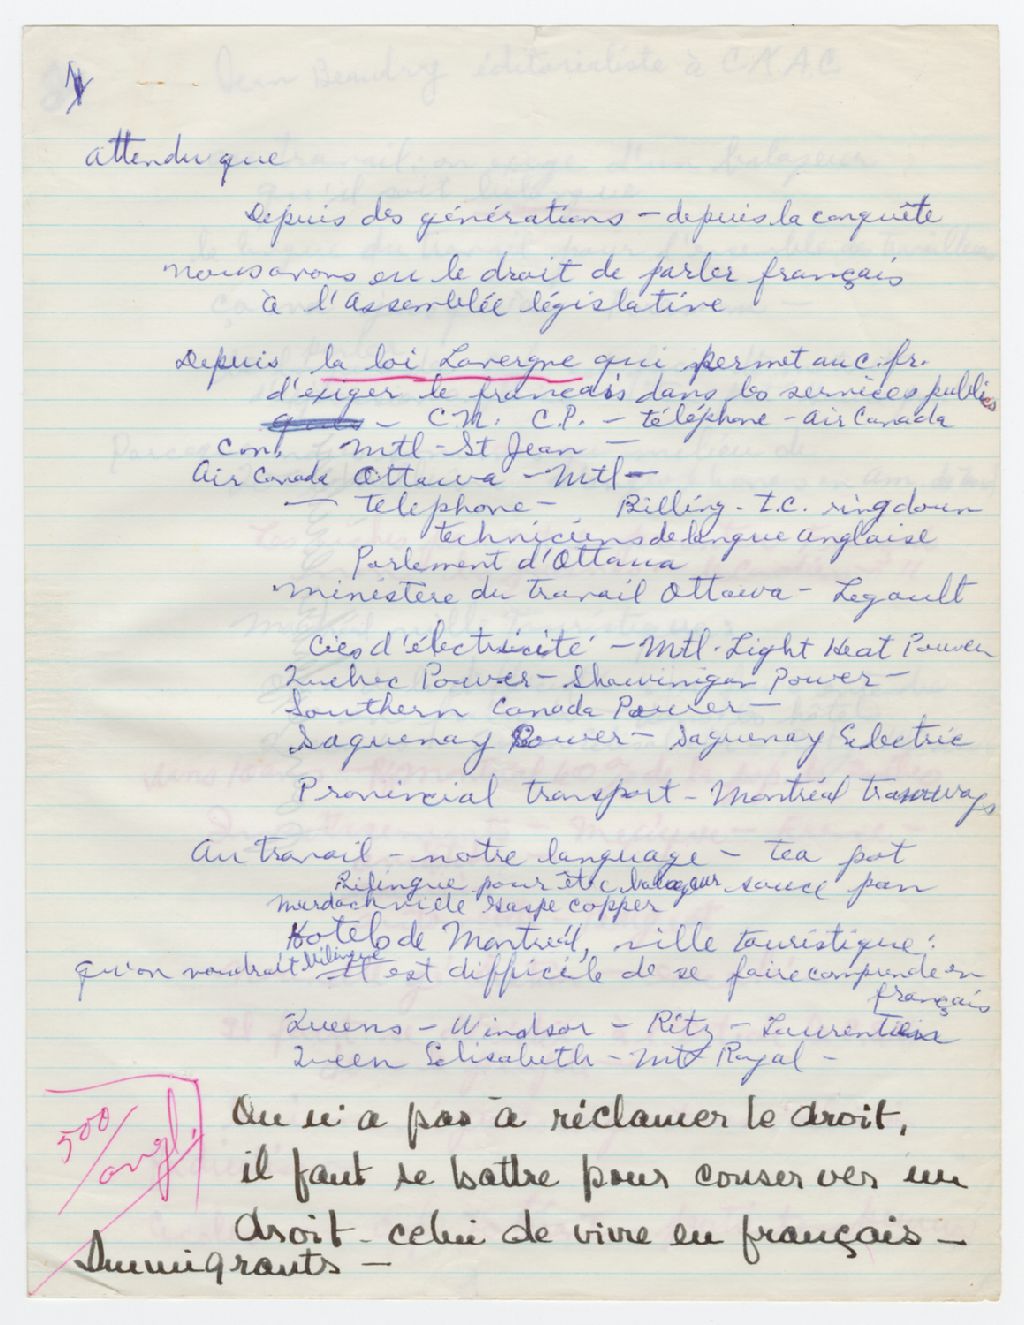 attendu que
Depuis des générations - depuis la conquête
nous avons eu le droit de parler français
à l'Assemblée législative
Depuis la loi Lavergne qui permet au c. fr.
d'exiger le français dans les services publics
- C.N. C.P. - téléphone - Air Canada
Con. Mtl - St Jean -
Air Canada Ottawa - Mtl -
- telephone - Billing - I.C. ring down
techniciens de langue anglaise
Parlement d'Ottawa
ministère du travail Ottawa - Legault
Cies d'électricité - Mtl. Light Heat Power
Quebec Power - Shawinigan Power -
Southern Canada Power -
Saguenay Power - Saguenay Electric
Provincial transport - Montréal tramways
Au travail - notre language - tea pot
Bilingue pour être balayeur souce pan
Murdochville Gaspe copper
Hotels de Montréal, ville touristique :
qu'on voudrait bilingue Il est difficile de se faire comprende en
français
Queens - Windsor - Ritz - Laurentien
Queen Elisabeth - Mt Royal -
500/angl.
On n'a pas à réclamer le droit,
il faut se battre pour conserver un
droit - celui de vivre en français -
Immigrants -